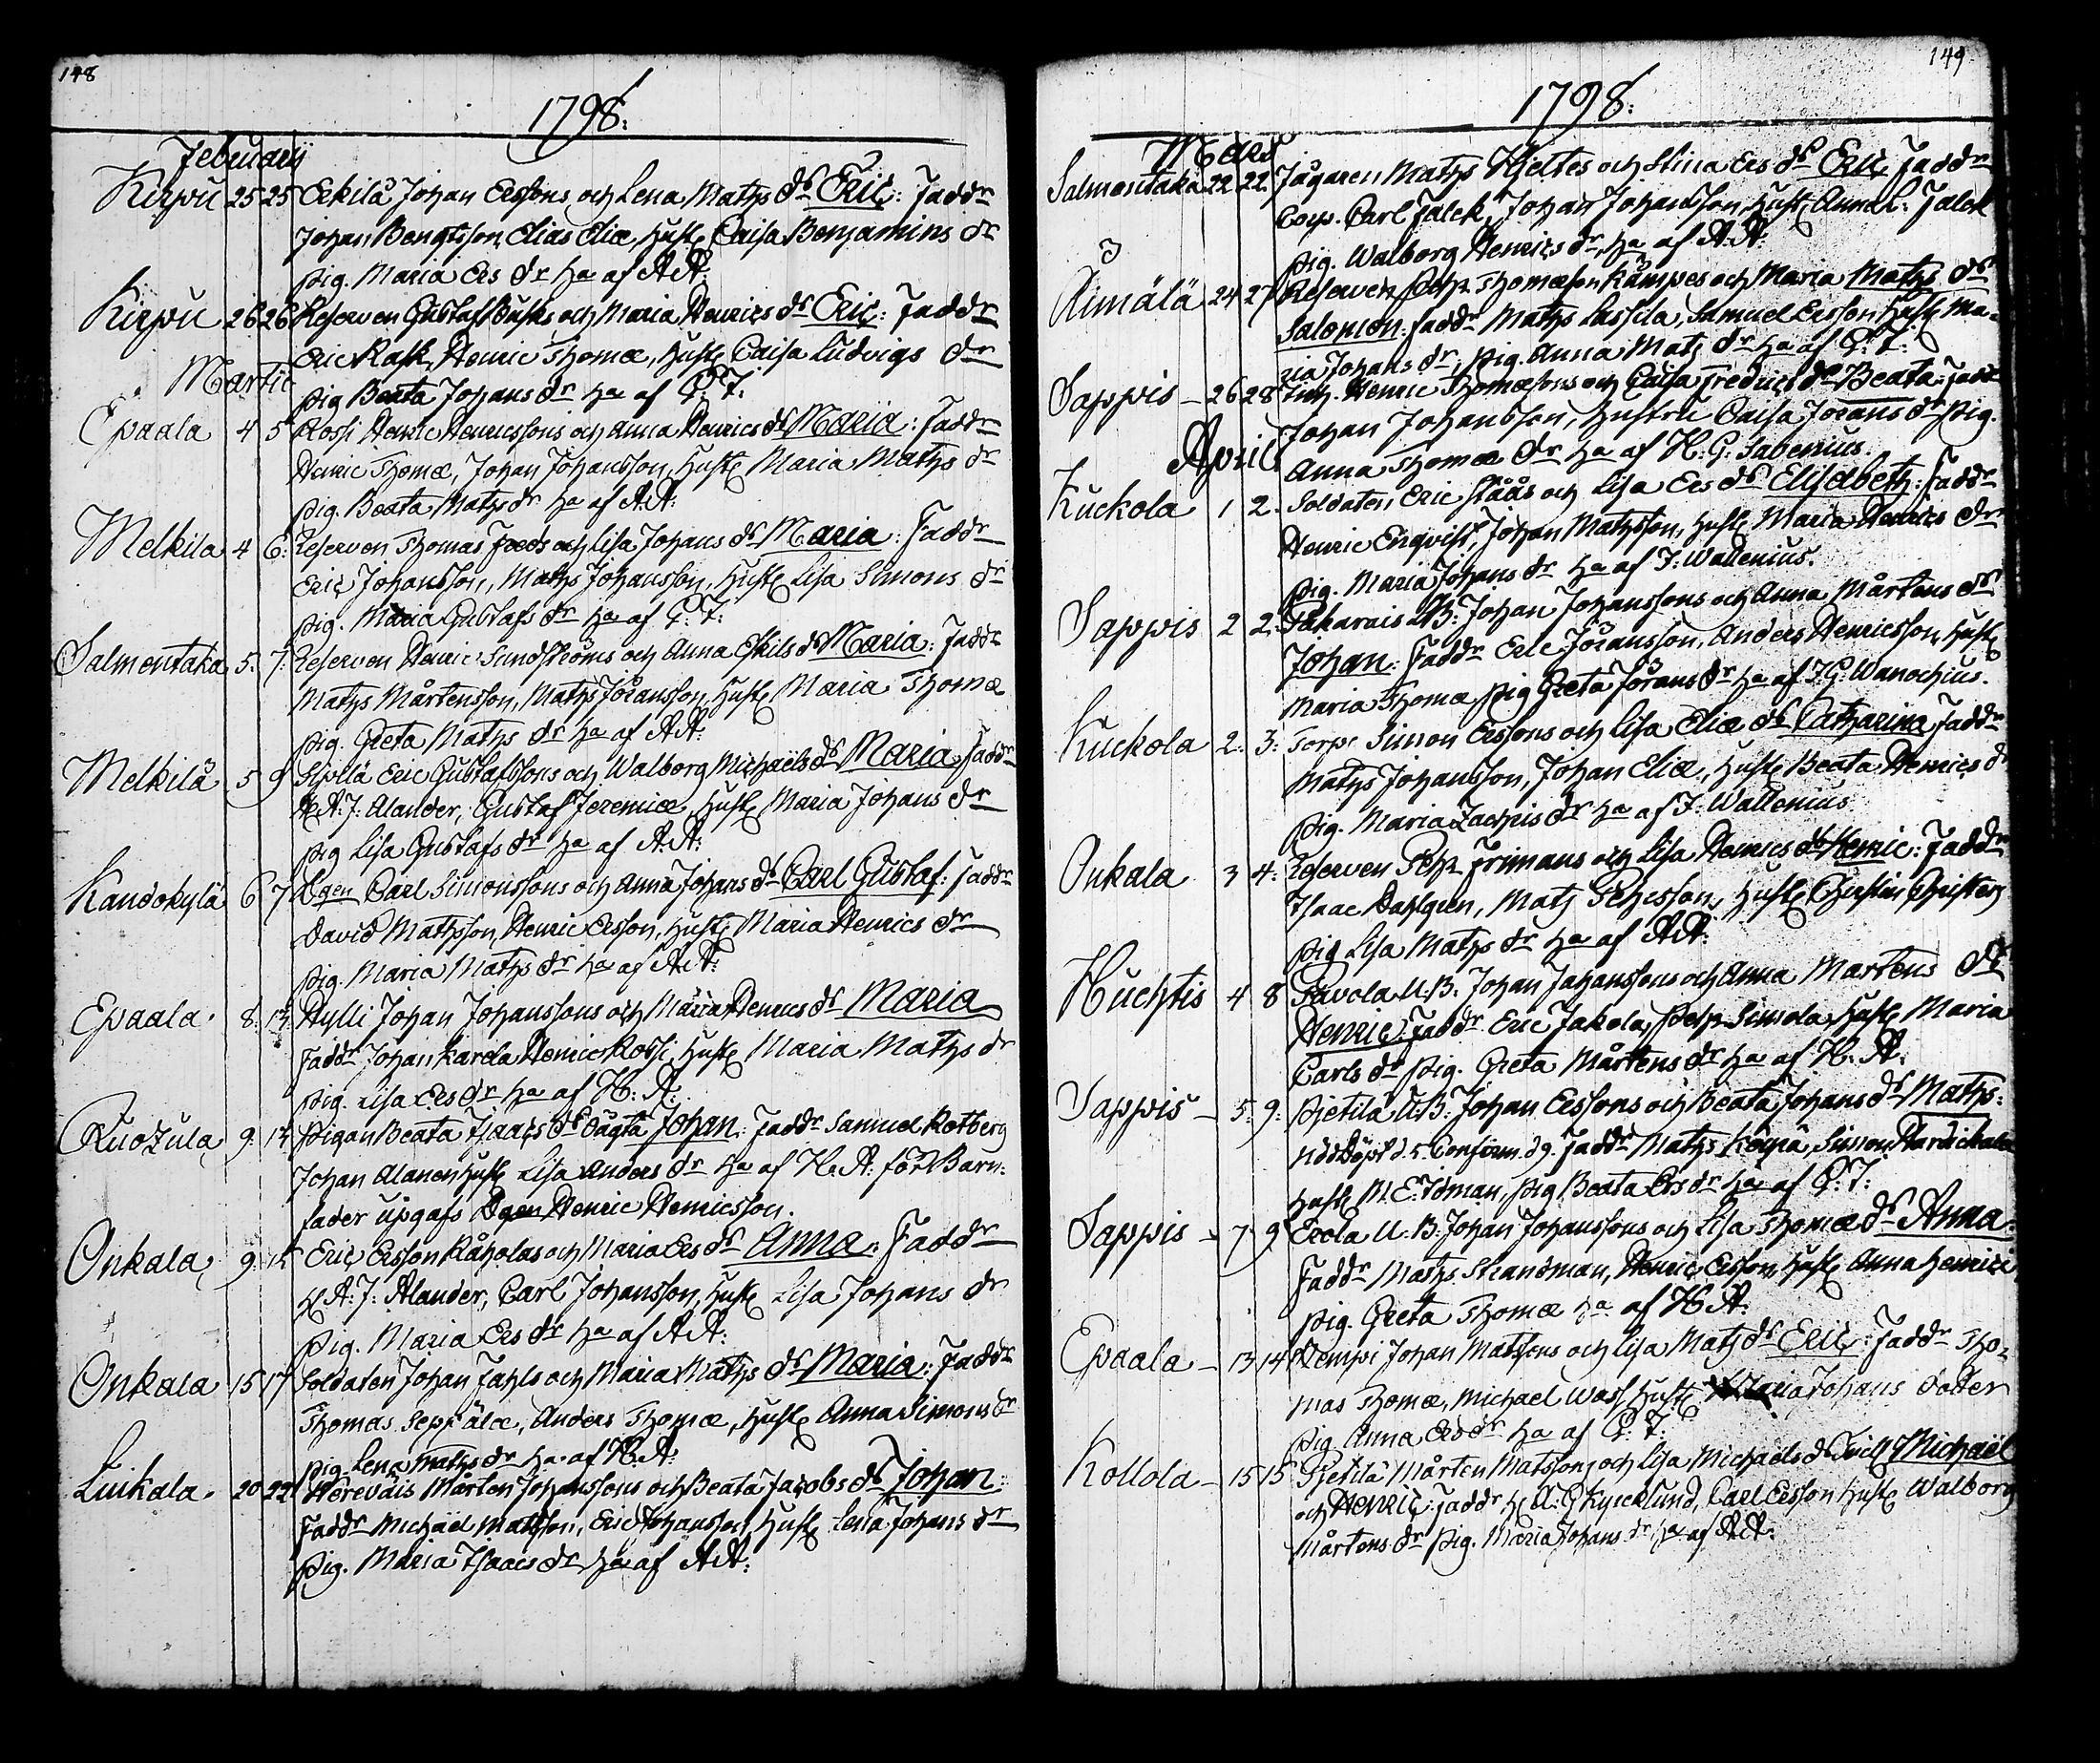 148
1798:
Februarii
Kirpu 25 25 Eckilä Johan Erssons och Lena Mathsdr Eric: Faddr
Johan Bengtsson, Elias Eliæ, Hust. Caisa Benjamins dr
pig. Maria Ers dr ha af A.A:
Kirpu 26 26 Reserven Gustaf Busks och Maria Henrics dr Eric: Faddr
Eric Rask, Henric Thomæ, Hust. Caisa Ludvigs dr
pig Beata Johans dr ha af G: T:
Martii
Epaala 4 5 Rossi Henric Henricssons och Anna Henrics dr Maria: Faddr
Henric Thomæ, Johan Johansson, Hust. Maria Maths dr
pig. Beata Maths dr ha af A.A:
Melkila 4 6: Reserven Thomas och Lisa Johans dr Maria: Faddr
Eric Johansson, Maths Johansson, Hust. Lisa Simons dr
pig. Maria Gustafs dr ha af G: T:
Salmentaka 5. 7: Reserven Henric Sundströms och Anna Eskils dr Maria: Faddr
Maths Mårtensson, Maths Jöransson, Hust. Maria Thomæ
pig. Greta Maths dr ha af A.A:
Melkilä 5 9 Sipilä Eric Gustafssons och Walborg Michaels dr Maria: Faddr
H. A: J: Alander, Gustaf Jeremiæ, Hust. Maria Johans dr
pig Lisa Gustafs dr ha af A.A:
Kandokylä 6 7 Dgen Carl Simonssons och Anna Johans dr Carl Gustaf: Faddr
David Mathsson, Henric Ersson, Hust. Maria Henrics dr
pig. Maria Maths dr ha af A.A:
Epaala. 8. 13 Hylli Johan Johanssons och Maria Henrics dr Maria
Faddr Johan Karela, Henric Rossi, Hust. Maria Maths dr
pig. Lisa Ers dr ha af H: A:
9. 13 Pigan Beata Isaacs dr oägta Johan: Faddr Samuel Rotberg
Johan Alanen, Hust. Lisa Anders dr ha af H. A: för Barn:
fader upgafs Dgen Henric Henricsson.
Onkala, 9. 15 Eric Ersson Råholas och Maria Ers dr Anna: Faddr
H. A: J: Alander, Carl Johansson, Hust. Lisa Johans dr
pig. Maria Ers dr ha af A.A:
Onkala 15 17 Soldaten Johan Fahls och Maria Maths dr Maria: Faddr
Thomas Seppälæ, Anders Thomæ, Hust. Anna Simons dr
pig. Lena Maths dr ha af H: A:
Luikala. 20 22 Herevais Mårten Johanssons och Beata Jacobs dr Johan:
Faddr Michäel Mattsson, Eric Johansson, Hust. Lena Johans dr
pig. Maria Isaacs dr ha af A.A:
149
1798:
Mars
Salmentaka 22 22 Jägaren Maths Hjeltes och Stina Ers dr Eric Faddr
Corp. Carl Falck, Johan Johansson, Hust. Anna L: Falck
pig. Walborg Henrics dr, ha af A.A:
3
Rimälä 24 27 Reserven Pehr Thomæson Kämpes och Maria Maths dr
Salomon: Faddr Maths Lassila, Samuel Ersson, Hust. Ma-
ria Johans dr, pig. Anna Mats dr ha af G: T:
Sappis - 26 28 Inh. Henric Thomæsons och Caisa Fredrics dr Beata: Faddr
Johan Johansson, Hustru Caisa Jörans dr pig.
Anna Thomæ dr ha af H: G: Sabenius.
April
Kuckola 1 2. Soldaten Eric Ståås och Lisa Ers dr Elisabeth: Faddr
Henric Enqvist, Johan Mathsson, Hust. Maria Henrics dr
pig. Maria Johans dr ha af F: Wallenius.
Sappis 2 2: U.B: Johan Johanssons och Anna Mårtens dr
Johan: Faddr Eric Jöransson, Anders Henricsson, Hust.
Maria Thomæ pig Greta Jörans dr ha af J.G: Wanochius.
Kuckola 2. 3: Torp. Simon Ersons och Lisa Eliæ dr Catharina Faddr
Maths Johansson, Johan Eliæ, Hust. Beata Henrics dr
pig. Maria Zachris dr ha af F: Wallenius
Onkala 3 4: Reserven Pehr Frimans och Lisa Henrics dr Henric: Faddr
Isaac Dahlgren, Mats Pehrsson, Hust. Christin Christers
pig Lisa Maths dr ha af A.A:
Huchtis 4 8 Pavola U.B: Johan Johanssons och Anna Mårtens dr
Henric: Faddr Eric Jakola, Pehr Simola, Hust. Maria
Carls dr pig. Greta Mårtens dr ha af H. A:
Sappis - 5. 9: Pietilä U.B: Johan Erssons och Beata Johans dr Maths:
nöddöpt d. 5. Confirm. d 9. Faddr Maths Kospä, Simon
Hust. M. E: Idman, pig Beata Ers dr ha af G: T:
Sappis - 7 9 Erola U: B: Johan Johanssons och Lisa Thomæ dr Anna:
Faddr Maths Strandman, Henric Ersson, Hust. Anna Henrici
pig. Greta Thomæ ha af H A:
Epaala - 13 14 Hempi Johan Matssons och Lisa Mats dr Eric: Faddr Tho-
mas Thomæ, Michael Wass, Hust. Maria Johans dotter
pig. Anna Ers dr ha af G: T:
Kollola - 15 15 Pietilä Mårten Matssons och Lisa Michaels dr Tvill. Michaël
och Henric: Faddr H. A: G Kyrcklund, Carl Ersson Hust. Walborg
Mårtens dr pig. Maria Johans dr ha af A.A: